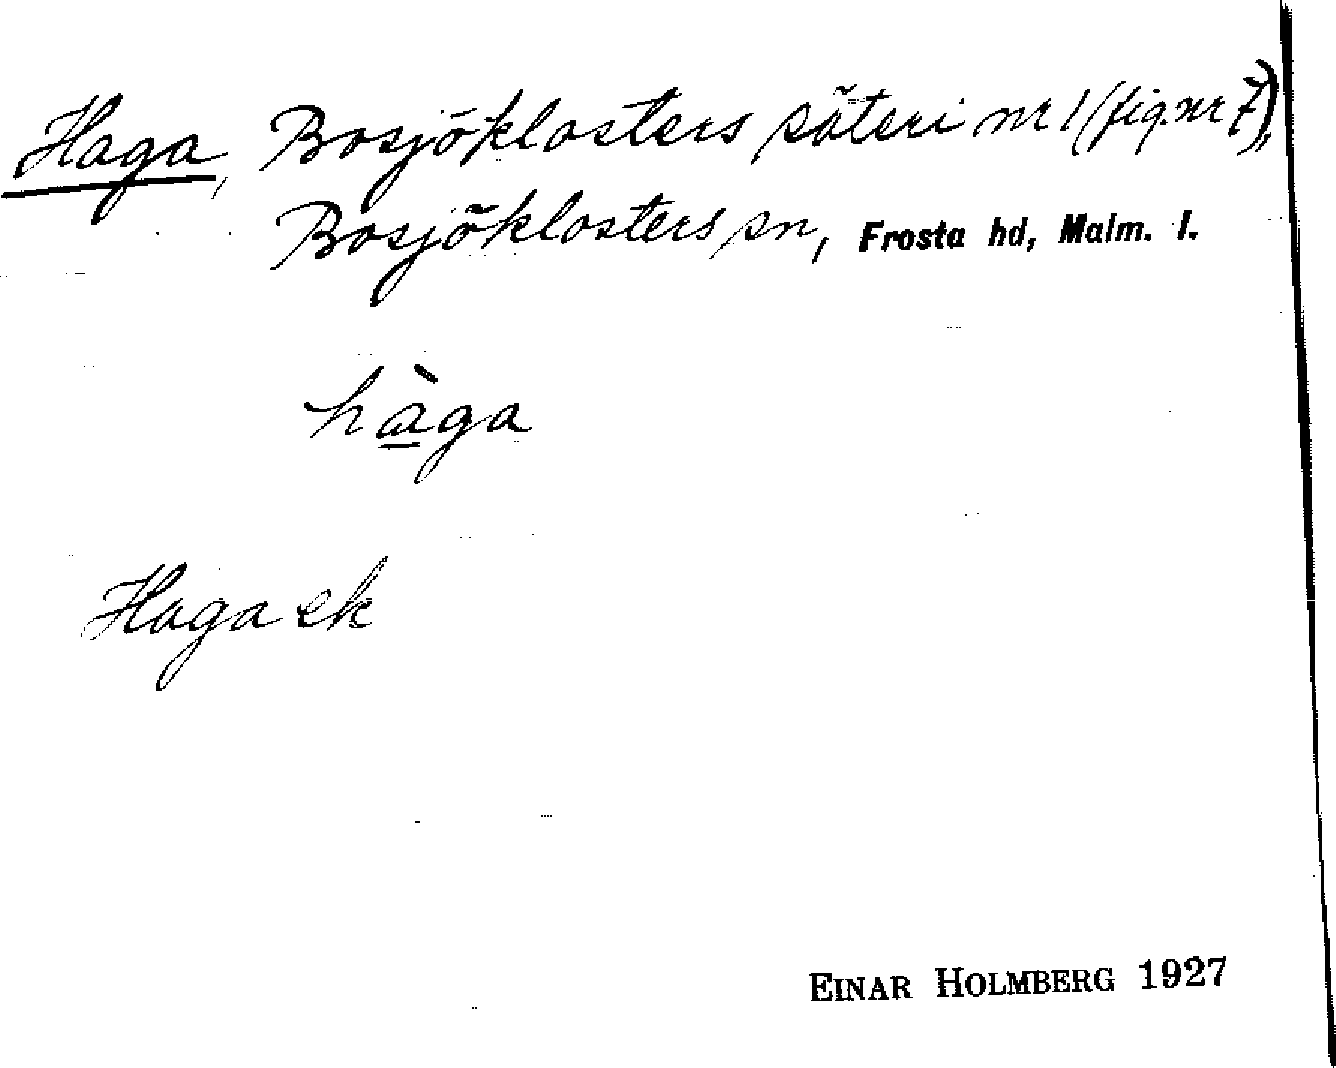 Haga, Bosjöklosters säteri nr 1 (fig. nr 7),
Bosjöklosters sn, Frosta hd, Malm. l.
hàga
Haga ek
EINAR HOLMBERG 1927